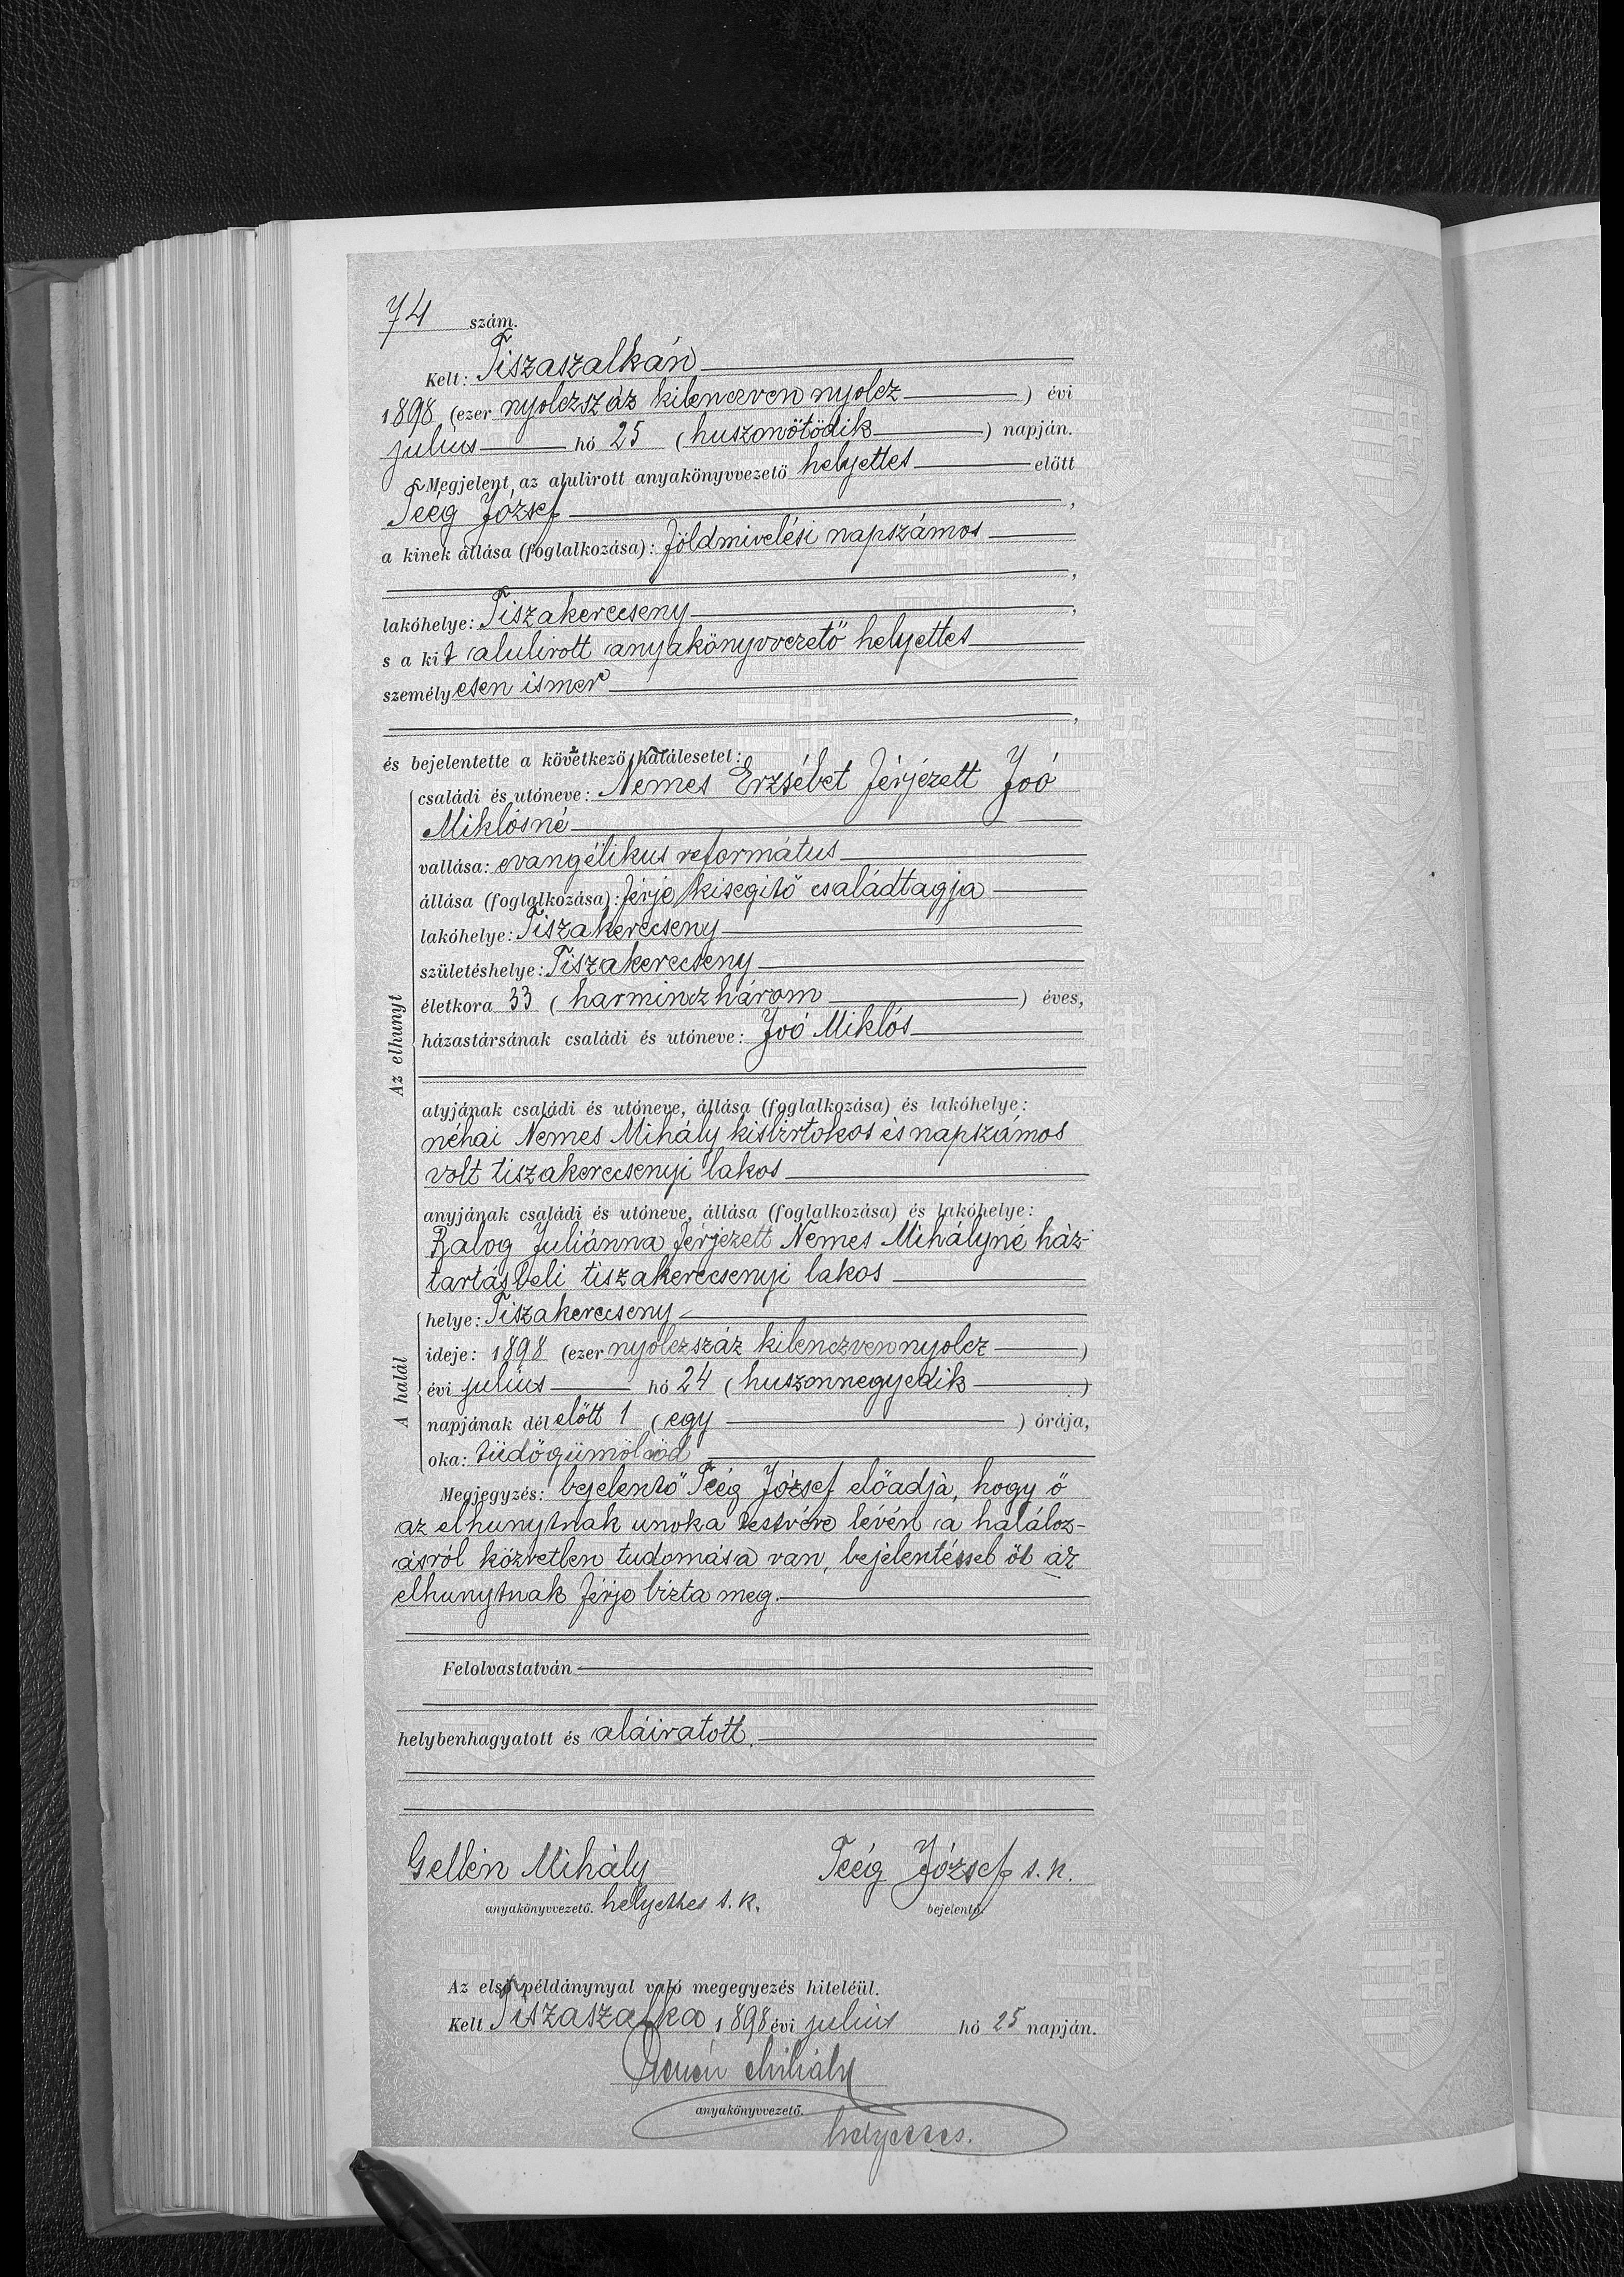 74 szám.
Kelt: Tiszaszalkán
1898 (ezer nyolczszáz kilenczven nyolcz ) évi
julius hó 25 (huszonötödik ) napján.
Megjelent, az alulirott anyakönyvvezető helyettes előtt
Teég József ,
a kinek állása (foglalkozása): földmivelési napszámos
,
lakóhelye: Tiszakerecseny ,
s a kit alulirott anyakönyvvezető helyettes
személyesen ismer
,
és bejelentette a következő halálesetet:
Az elhunyt
családi és utóneve: Nemes Erzsébet férjezett Joó
Miklósné
vallása: evangélikus református
állása (foglalkozása): férje kisegitő családtagja
lakóhelye: Tiszakerecseny
születéshelye: Tiszakerecseny
életkora 33 (harminczhárom ) éves,
házastársának családi és utóneve: Joó Miklós
atyjának családi és utóneve, állása (foglalkozása) és lakóhelye:
néhai Nemes Mihály kisbirtokos és napszámos
volt tiszakerecsenyi lakos
anyjának családi és utóneve, állása (foglalkozása) és lakóhelye:
Balog Juliánna férjezett Nemes Mihályné ház-
tartásbeli tiszakerecsenyi lakos
A halál
helye: Tiszakerecseny
ideje: 1898 (ezer nyolczszáz kilenczvennyolcz )
évi julius hó 24 (huszonnegyedik )
napjának dél előtt 1 (egy ) órája,
oka: tüdőgümőkód
Megjegyzés: bejelentő Teég József előadja, hogy ő
az elhunytnak unoka testvére lévén a haláloz-
ásról közvetlen tudomása van, bejelentéssel őt az
elhunytnak férje bizta meg.
Felolvastatván
helybenhagyatott és aláiratott.
Gellén Mihály Teég József s. k.
anyakönyvvezető. helyettes s. k. bejelentő.
Az első példánynyal való megegyezés hiteléül.
Kelt Tiszaszalka 1898 évi julius hó 25 napján.
Gellén Mihály
anyakönyvvezető.
helyettes.